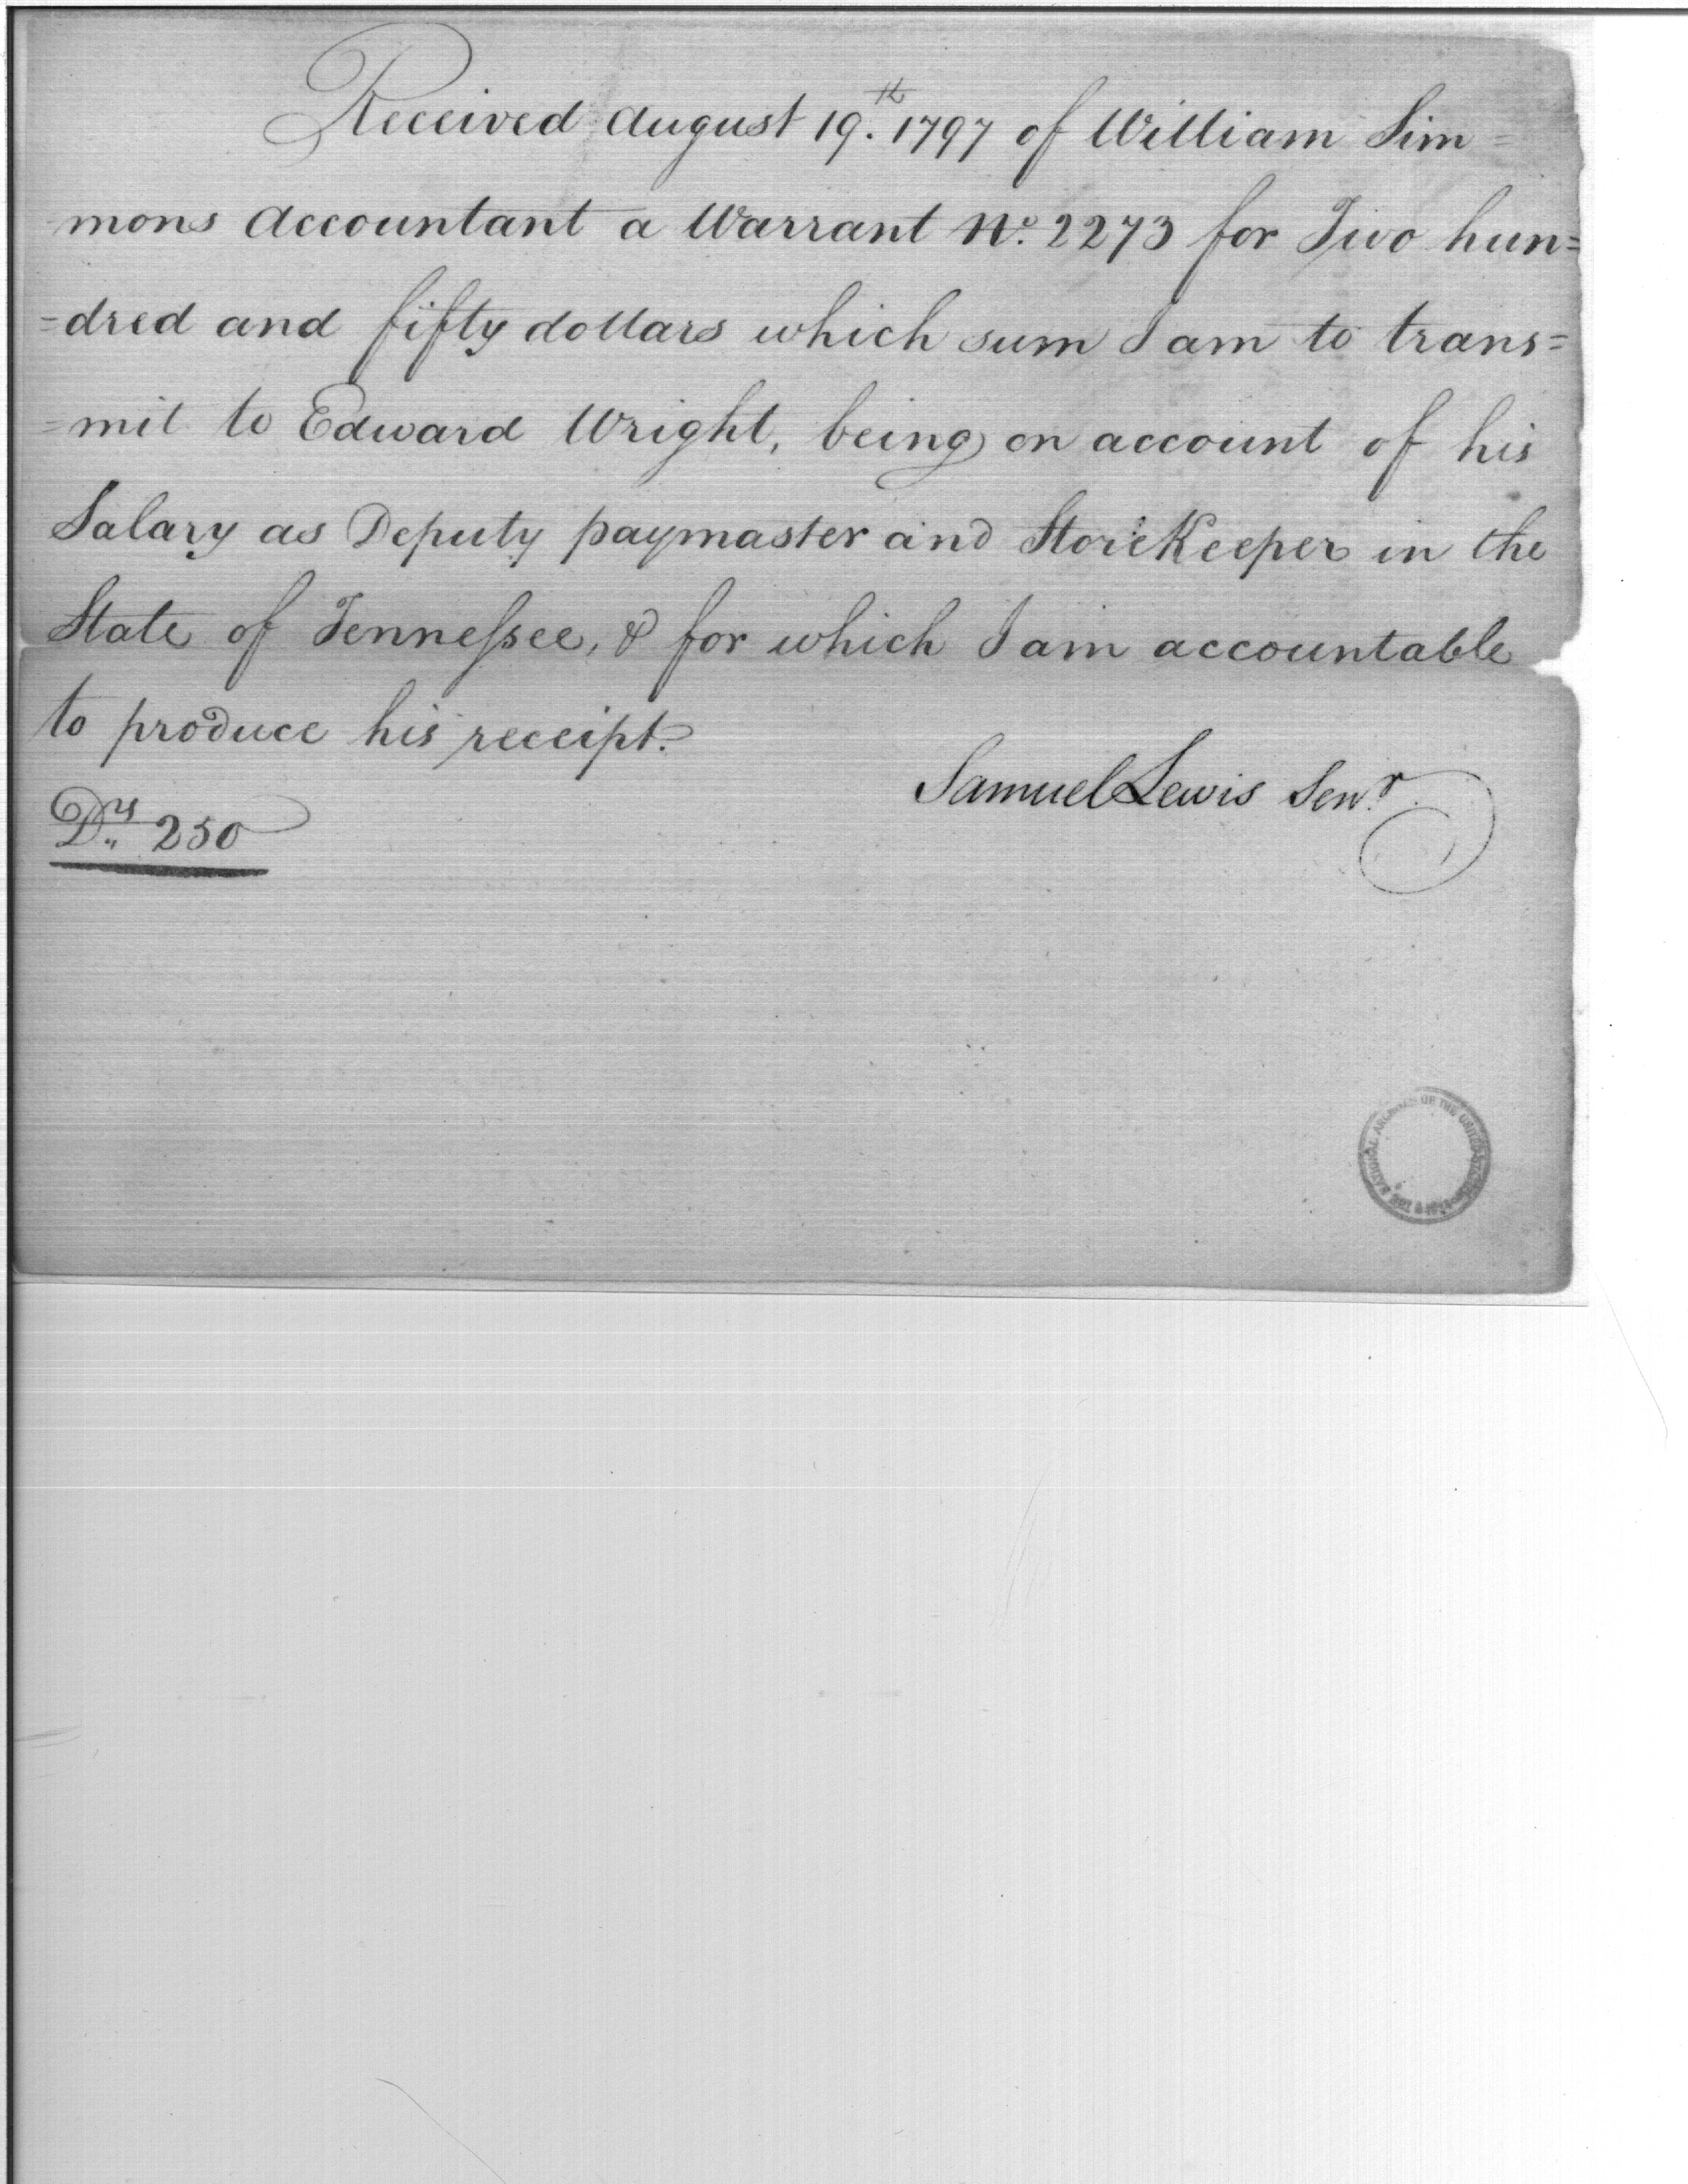 Received August 19.th 1797 of William Sim=
mons Accountant a Warrant No. 2273 for Two hun=
=dred and fifty dollars which sum I am to trans=
=mit to Edward Wright, being on account of his
Salary as Deputy paymaster and StoreKeeper in the
State of Tenneſsee, & for which I am accountable
to produce his receipt.
Samuel Lewis Senr.
Drs 250
NATIONAL ARCHIVES OF THE UNITED STATES